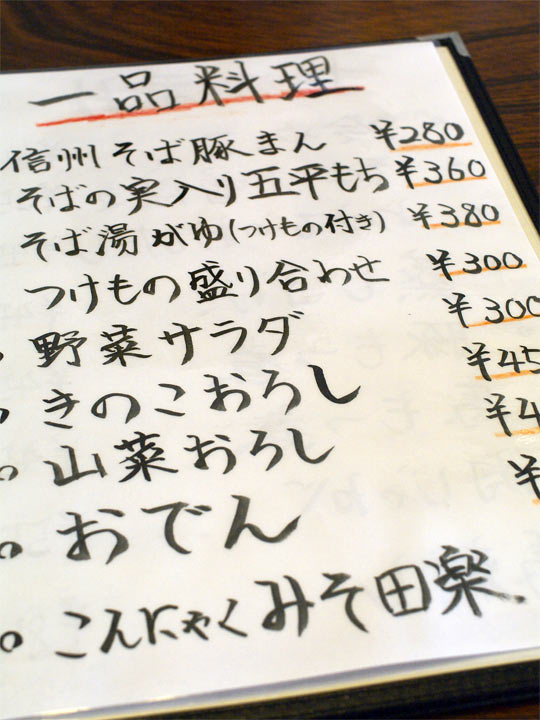 一品料理
信州そば豚まん ¥280
そばの実入り五平もち ¥360
そば湯がゆ(つけもの付き) ¥380
つけもの盛り合わせ ¥300
野菜サラダ ¥300
きのこおろし ¥45
山菜おろし ¥4
おでん ¥
こんにゃくみそ田楽